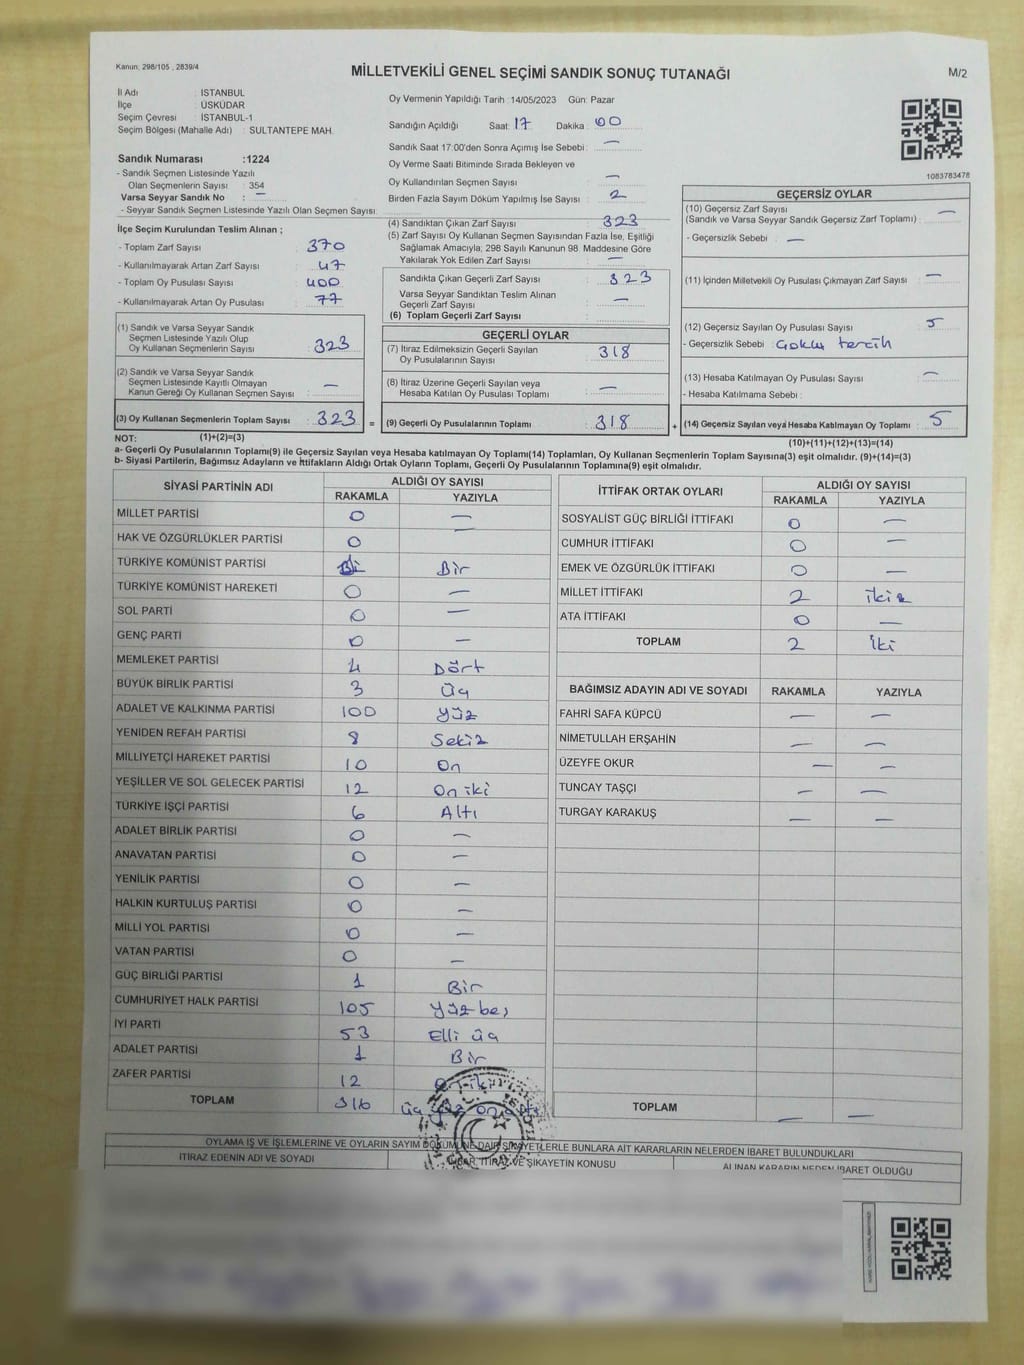 Kanun: 298/105 , 2839/4
MİLLETVEKİLİ GENEL SEÇİMİ SANDIK SONUÇ TUTANAĞI
M/2
İl Adı : İSTANBUL
İlçe : ÜSKÜDAR
Seçim Çevresi : İSTANBUL-1
Seçim Bölgesi (Mahalle Adı) : SULTANTEPE MAH.
Sandık Numarası :1224
- Sandık Seçmen Listesinde Yazılı
Olan Seçmenlerin Sayısı : 354
Varsa Seyyar Sandık No : —
- Seyyar Sandık Seçmen Listesinde Yazılı Olan Seçmen Sayısı:
İlçe Seçim Kurulundan Teslim Alınan ;
- Toplam Zarf Sayısı : 370
- Kullanılmayarak Artan Zarf Sayısı : 47
- Toplam Oy Pusulası Sayısı : 400
- Kullanılmayarak Artan Oy Pusulası : 77
(1) Sandık ve Varsa Seyyar Sandık
Seçmen Listesinde Yazılı Olup
Oy Kullanan Seçmenlerin Sayısı : 323
(2) Sandık ve Varsa Seyyar Sandık
Seçmen Listesinde Kayıtlı Olmayan
Kanun Gereği Oy Kullanan Seçmen Sayısı : —
(3) Oy Kullanan Seçmenlerin Toplam Sayısı : 323 =
Oy Vermenin Yapıldığı Tarih : 14/05/2023 Gün: Pazar
Sandığın Açıldığı Saat: 17 Dakika : 00
Sandık Saat 17:00'den Sonra Açımış İse Sebebi : —
Oy Verme Saati Bitiminde Sırada Bekleyen ve
Oy Kullandırılan Seçmen Sayısı : —
Birden Fazla Sayım Döküm Yapılmış İse Sayısı : 2
(4) Sandıktan Çıkan Zarf Sayısı : 323
(5) Zarf Sayısı Oy Kullanan Seçmen Sayısından Fazla İse, Eşitliği
Sağlamak Amacıyla; 298 Sayılı Kanunun 98. Maddesine Göre
Yakılarak Yok Edilen Zarf Sayısı : —
Sandıkta Çıkan Geçerli Zarf Sayısı : 323
Varsa Seyyar Sandıktan Teslim Alınan
Geçerli Zarf Sayısı : —
(6) Toplam Geçerli Zarf Sayısı :
GEÇERLİ OYLAR
(7) İtiraz Edilmeksizin Geçerli Sayılan
Oy Pusulalarının Sayısı : 318
(8) İtiraz Üzerine Geçerli Sayılan veya
Hesaba Katılan Oy Pusulası Toplamı : —
(9) Geçerli Oy Pusulalarının Toplamı : 318 +
1083783478
GEÇERSİZ OYLAR
(10) Geçersiz Zarf Sayısı
(Sandık ve Varsa Seyyar Sandık Geçersiz Zarf Toplamı) : —
- Geçersizlik Sebebi : —
(11) İçinden Milletvekili Oy Pusulası Çıkmayan Zarf Sayısı : —
(12) Geçersiz Sayılan Oy Pusulası Sayısı : 5
- Geçersizlik Sebebi : Çoklu tercih
(13) Hesaba Katılmayan Oy Pusulası Sayısı : —
- Hesaba Katılmama Sebebi :
(14) Geçersiz Sayılan veya Hesaba Katılmayan Oy Toplamı : 5
NOT: (1)+(2)=(3)
(10)+(11)+(12)+(13)=(14)
a- Geçerli Oy Pusulalarının Toplamı(9) ile Geçersiz Sayılan veya Hesaba katılmayan Oy Toplamı(14) Toplamları, Oy Kullanan Seçmenlerin Toplam Sayısına(3) eşit olmalıdır. (9)+(14)=(3)
b- Siyasi Partilerin, Bağımsız Adayların ve İttifakların Aldığı Ortak Oyların Toplamı, Geçerli Oy Pusulalarının Toplamına(9) eşit olmalıdır.
SİYASİ PARTİNİN ADI ALDIĞI OY SAYISI
RAKAMLA YAZIYLA
MİLLET PARTİSİ 0 —
HAK VE ÖZGÜRLÜKLER PARTİSİ 0 —
TÜRKİYE KOMÜNİST PARTİSİ Bir
TÜRKİYE KOMÜNİST HAREKETİ 0 —
SOL PARTİ 0 —
GENÇ PARTİ 0 —
MEMLEKET PARTİSİ 4 Dört
BÜYÜK BİRLİK PARTİSİ 3 üç
ADALET VE KALKINMA PARTİSİ 100 yüz
YENİDEN REFAH PARTİSİ 8 Sekiz
MİLLİYETÇİ HAREKET PARTİSİ 10 On
YEŞİLLER VE SOL GELECEK PARTİSİ 12 On iki
TÜRKİYE İŞÇİ PARTİSİ 6 Altı
ADALET BİRLİK PARTİSİ 0 —
ANAVATAN PARTİSİ 0 —
YENİLİK PARTİSİ 0 —
HALKIN KURTULUŞ PARTİSİ 0 —
MİLLİ YOL PARTİSİ 0 —
VATAN PARTİSİ 0 —
GÜÇ BİRLİĞİ PARTİSİ 1 Bir
CUMHURİYET HALK PARTİSİ 105 yüz beş
İYİ PARTİ 53 Elli üç
ADALET PARTİSİ 1 Bir
ZAFER PARTİSİ 12 On iki
TOPLAM 316 üç yüz on altı
İTTİFAK ORTAK OYLARI ALDIĞI OY SAYISI
RAKAMLA YAZIYLA
SOSYALİST GÜÇ BİRLİĞİ İTTİFAKI 0 —
CUMHUR İTTİFAKI 0 —
EMEK VE ÖZGÜRLÜK İTTİFAKI 0 —
MİLLET İTTİFAKI 2 iki
ATA İTTİFAKI 0 —
TOPLAM 2 iki
BAĞIMSIZ ADAYIN ADI VE SOYADI RAKAMLA YAZIYLA
FAHRİ SAFA KÜPCÜ — —
NİMETULLAH ERŞAHİN — —
ÜZEYFE OKUR — —
TUNCAY TAŞÇI — —
TURGAY KARAKUŞ — —
TOPLAM — —
OYLAMA İŞ VE İŞLEMLERİNE VE OYLARIN SAYIM DÖKÜMÜNE DAİR ŞİKAYETLERLE BUNLARA AİT KARARLARIN NELERDEN İBARET BULUNDUKLARI
İTİRAZ EDENİN ADI VE SOYADI İTİRAZ VE ŞİKAYETİN KONUSU ALINAN KARARIN NEDEN İBARET OLDUĞU